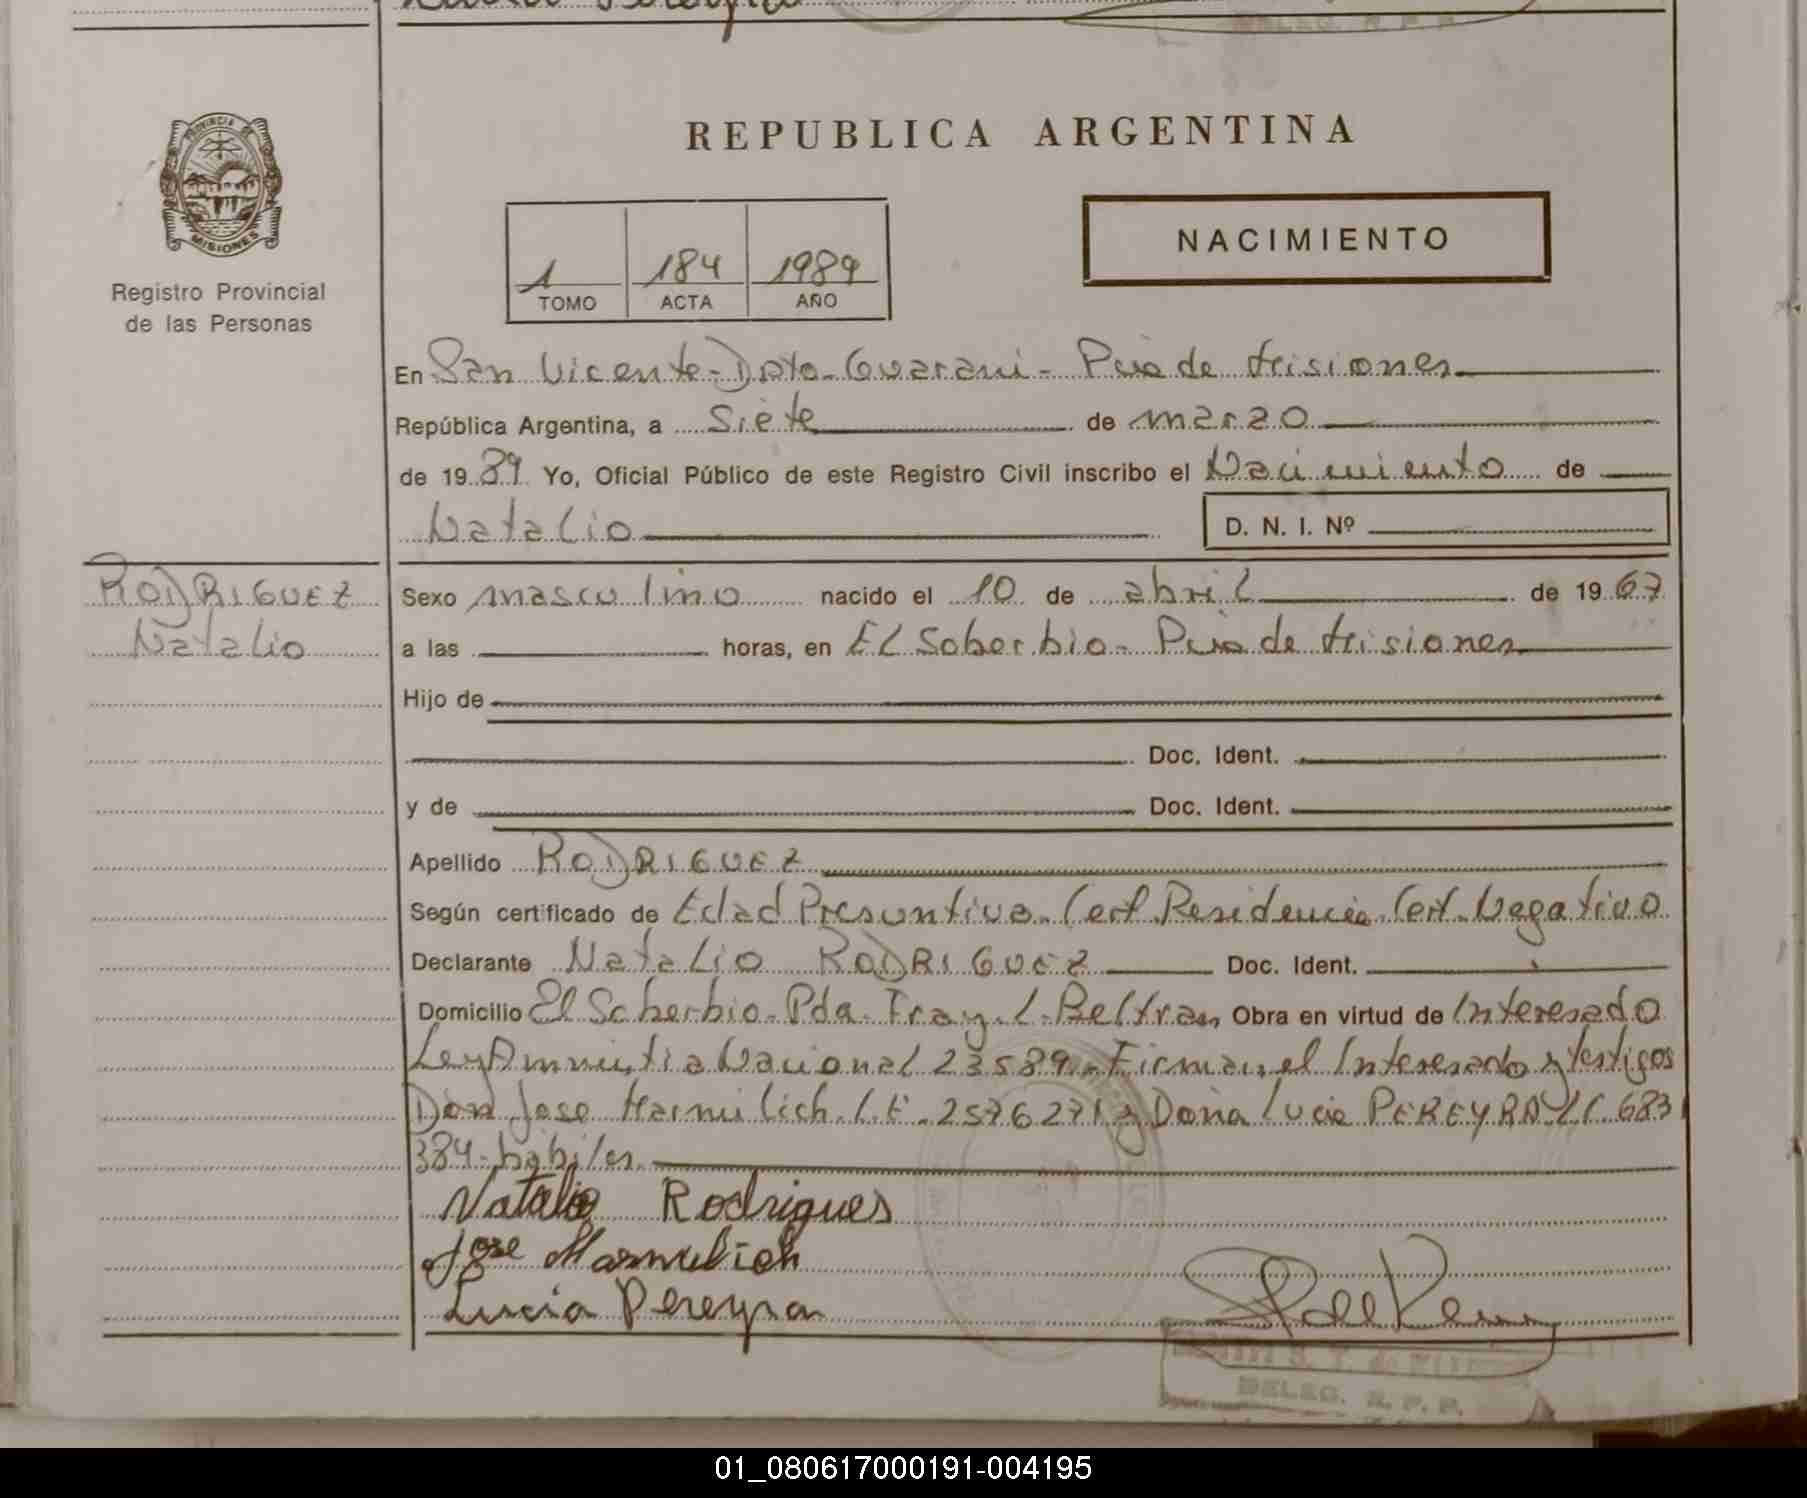 PROVINCIA DE
MISIONES
Registro Provincial
de las Personas
REPUBLICA ARGENTINA
NACIMIENTO
1 184 1989
TOMO ACTA AÑO
En San Vicente - Dpto - Guarani - Pcia de Misiones
República Argentina, a Siete de marzo
de 1989 Yo, Oficial Público de este Registro Civil inscribo el Nacimiento de
Natalio D. N. I. Nº
RODRIGUEZ
Natalio
Sexo masculino nacido el 10 de abril de 1967
a las horas, en El Soberbio - Pcia de Misiones
Hijo de
Doc. Ident.
y de Doc. Ident.
Apellido RODRIGUEZ
Según certificado de Edad Presuntiva. Cert. Residencia. Cert. Negativo
Declarante Natalio RODRIGUEZ Doc. Ident.
Domicilio El Soberbio - Pda. Fray. L. Beltran Obra en virtud de Interesado
Ley Amnistia Nacional 23589. Firman el Interesado y testigos
Don Jose Marmilich. L.E. 2576271 y Doña Lucia PEREYRA L.C. 683
384 - habiles.
Natalio Rodrigues
Jose Marmulich
Lucia Pereyra
DELEG. R. P. P.
01_080617000191-004195